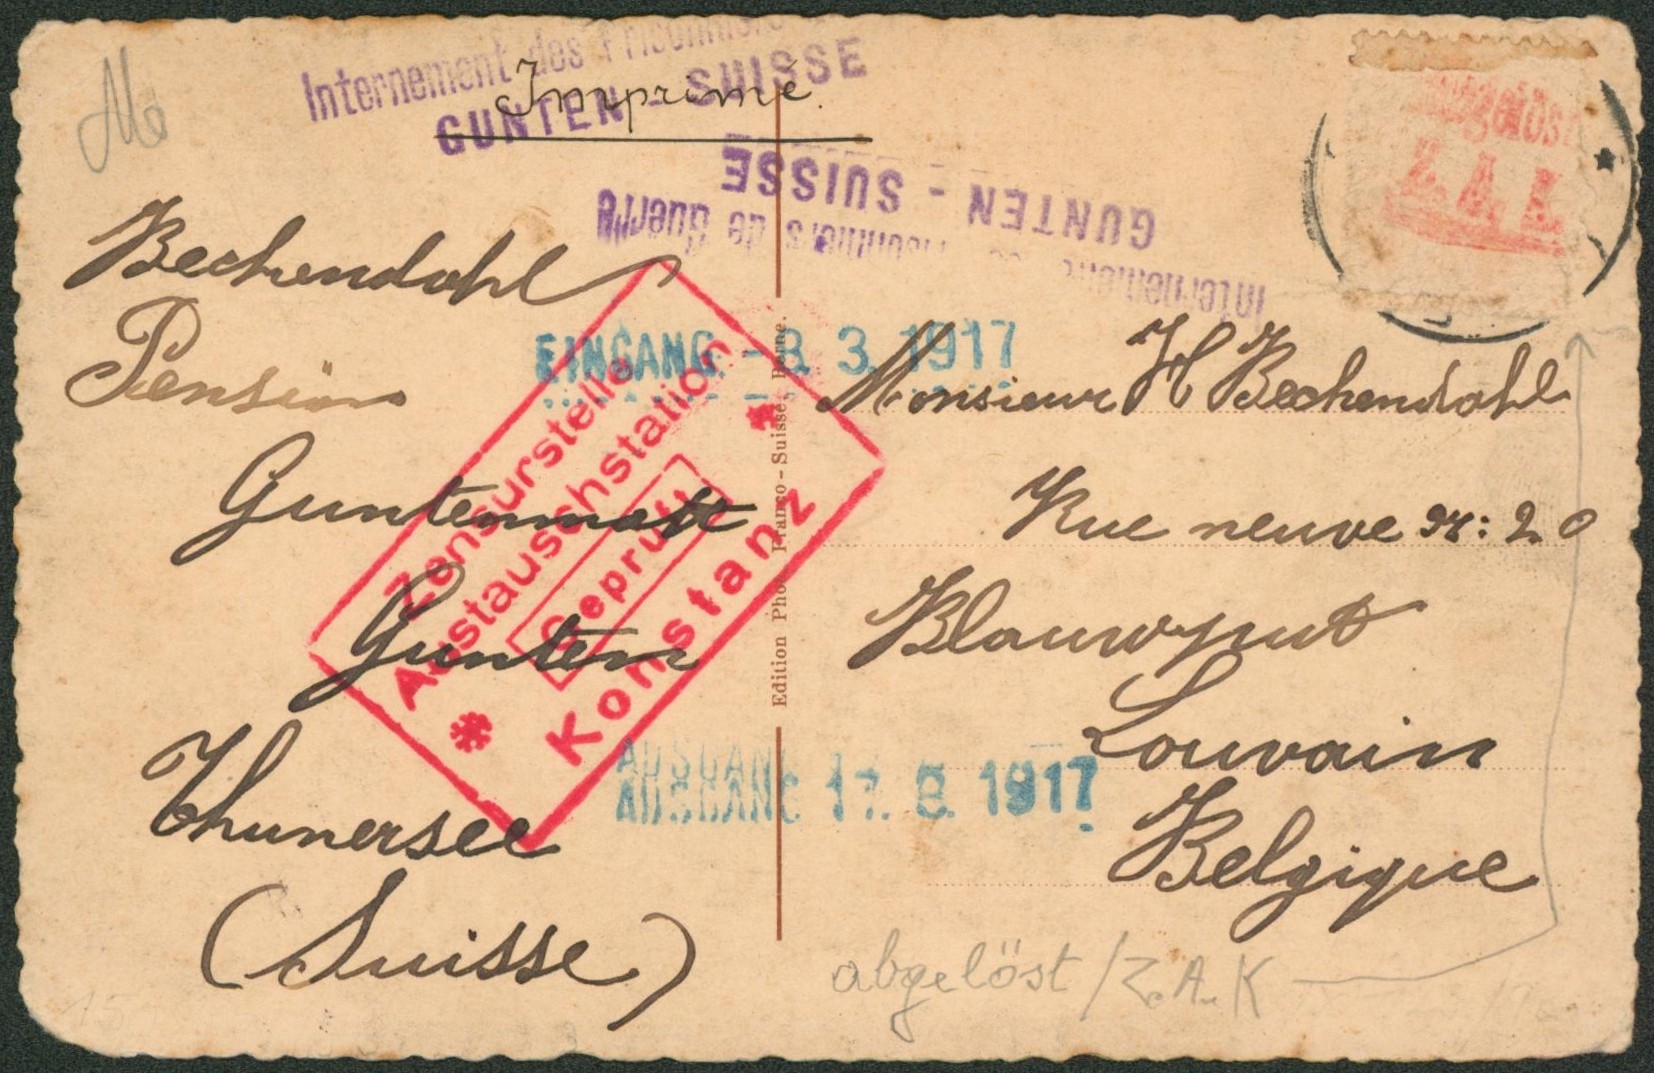 Internement des Prisonniers
GUNTEN - SUISSE
Imprimé.
GUNTEN - SUISSE
Internement de Prisonniers de Guerre
abgelöst
Z.A.K.
Bechendahl
Pension
Guntenmatt
Gunten
Thunersee
(Suisse)
EINGANG - 8. 3. 1917
Zensurstelle
Austauschstation
Geprüft
Konstanz
AUSGANG
AUSGANG 17. 1917
Edition Phot. Franco-Suisse, Berne.
Monsieur H Bechendahl
Rue neuve nr: 20
Blauwput
Louvain
Belgique
abgelöst / Z.A.K